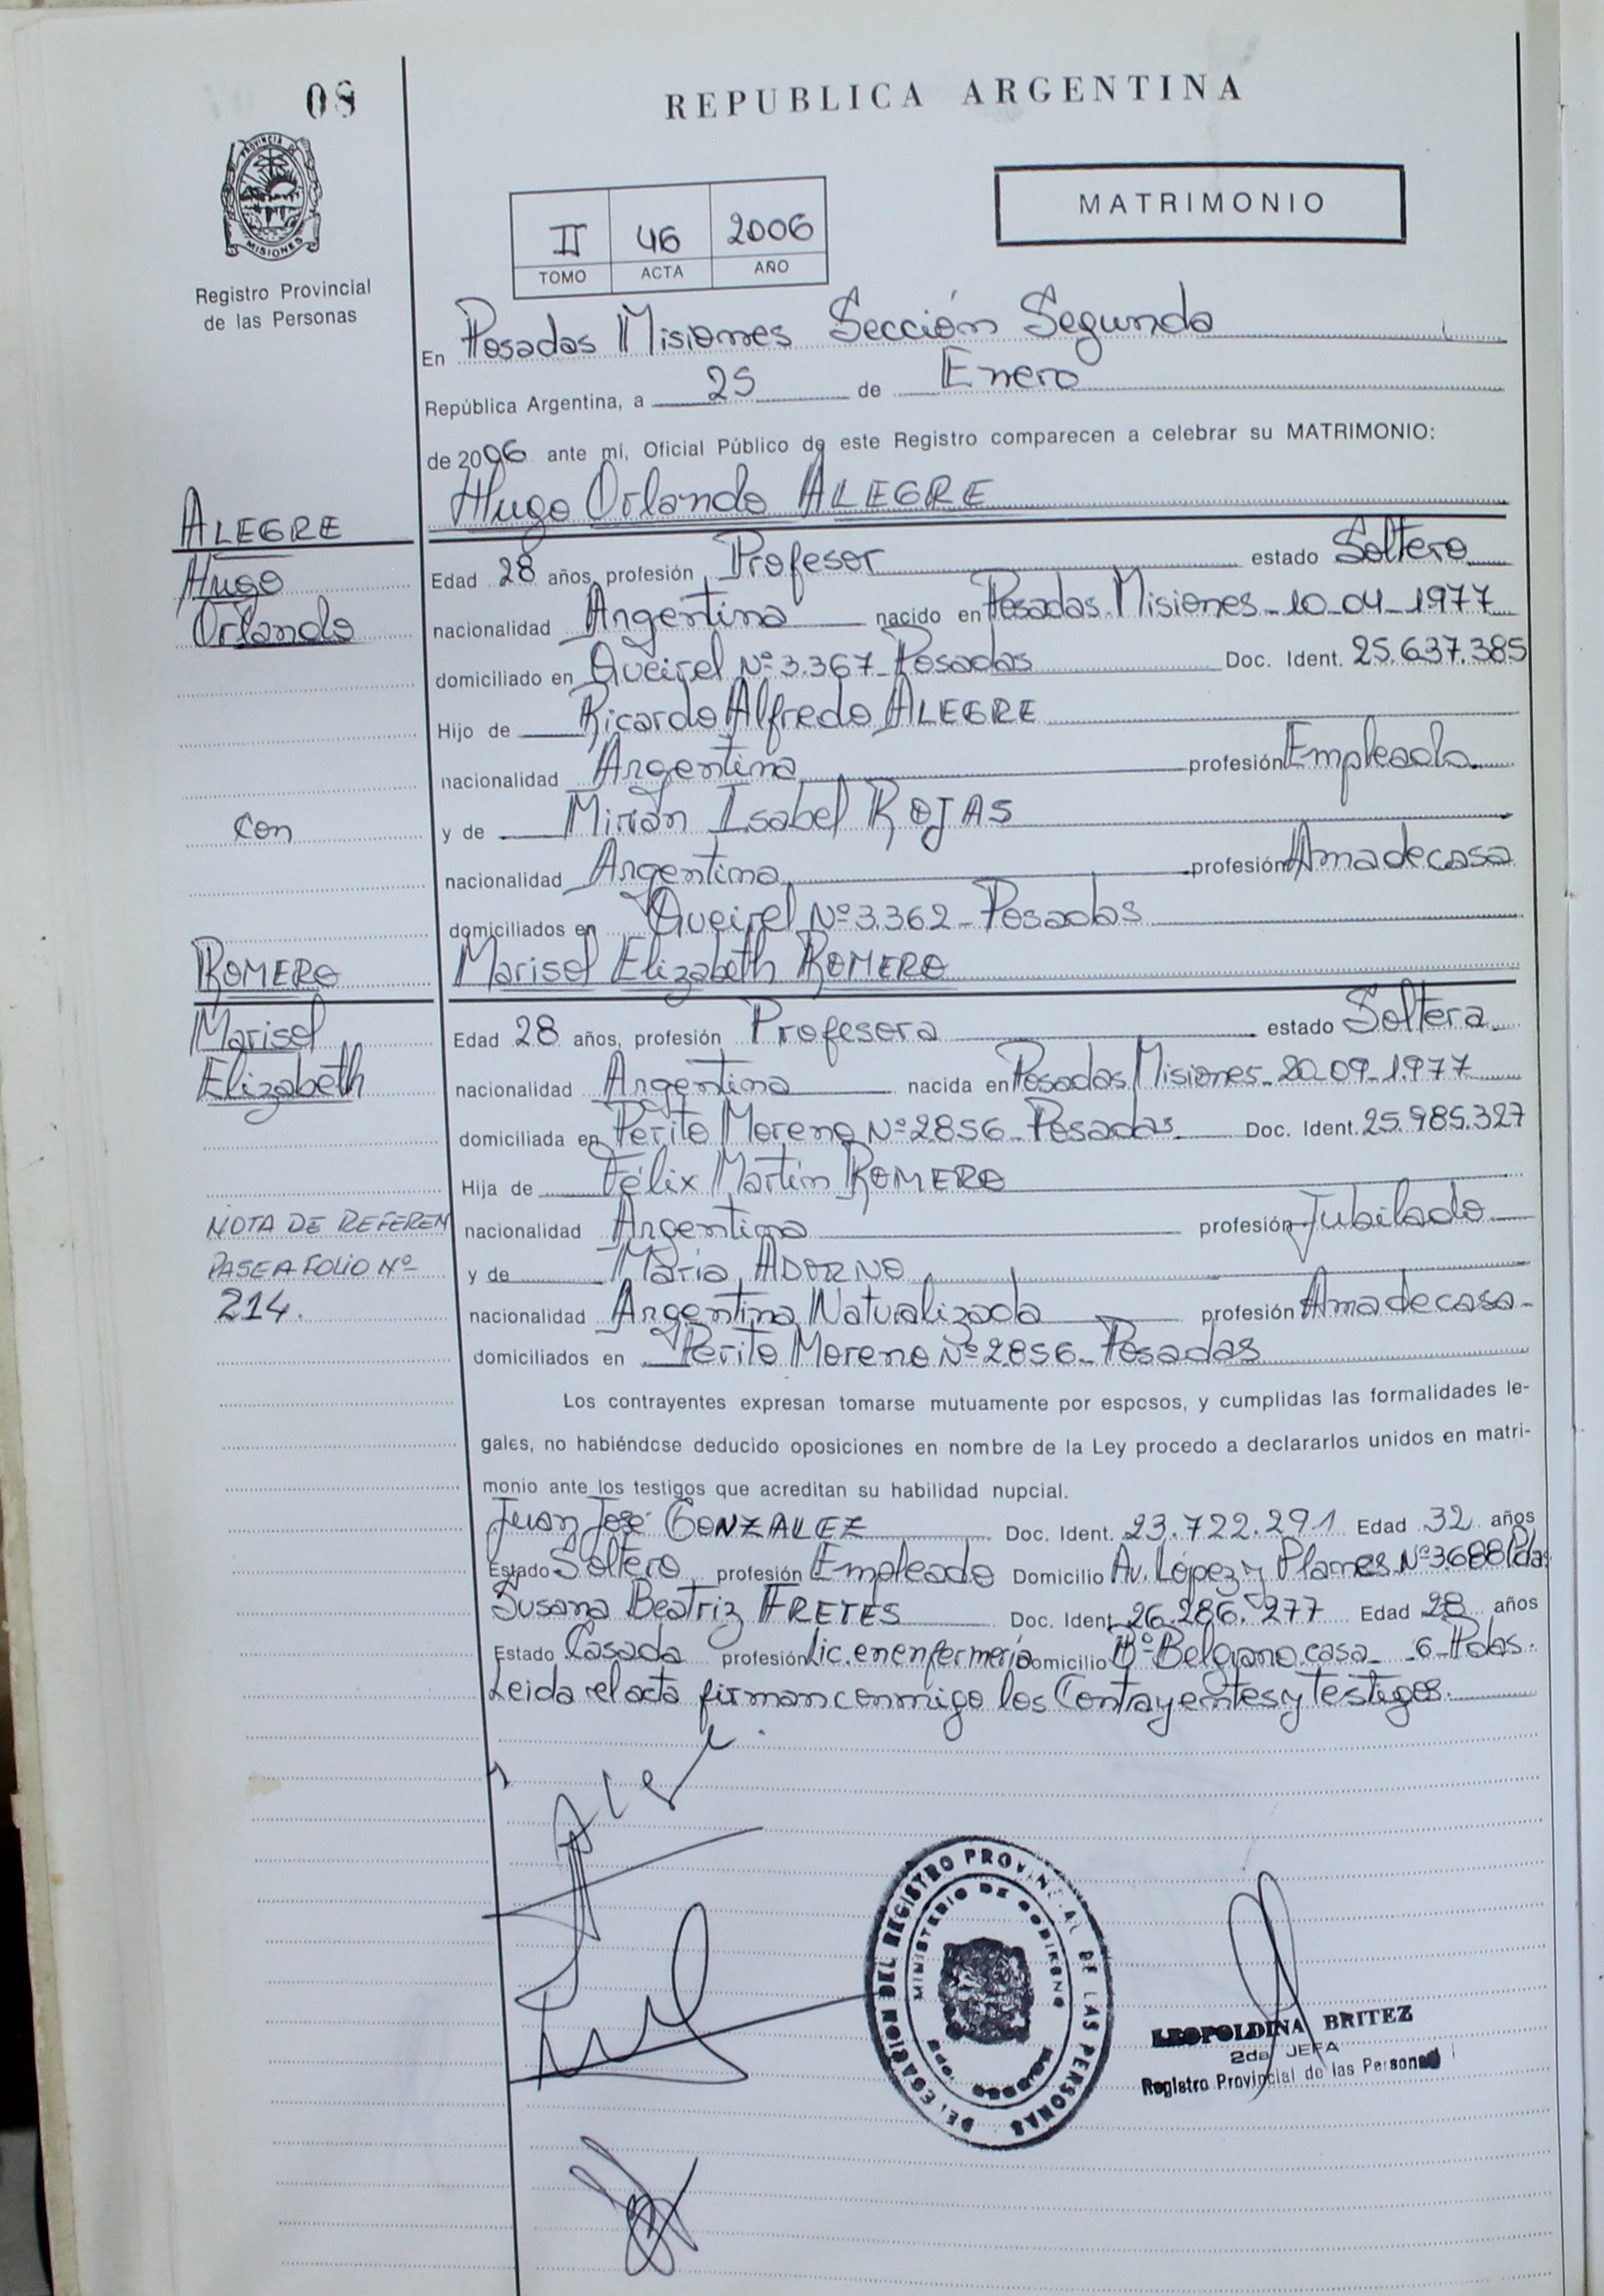 08
REPUBLICA ARGENTINA
PROVINCIA DE
MISIONES
Registro Provincial
de las Personas
II 46 2006
TOMO ACTA AÑO
MATRIMONIO
En Posadas Misiones Sección Segunda
República Argentina, a 25 de Enero
de 2006 ante mí, Oficial Público de este Registro comparecen a celebrar su MATRIMONIO:
ALEGRE
Hugo
Orlando
Hugo Orlando ALEGRE
Edad 28 años, profesión Profesor estado Soltero
nacionalidad Argentina nacido en Posadas Misiones - 10-04-1977
domiciliado en Queirel Nº 3.367 - Posadas Doc. Ident. 25.637.385
Hijo de Ricardo Alfredo ALEGRE
nacionalidad Argentina profesión Empleado
con
y de Mirian Isabel ROJAS
nacionalidad Argentina profesión Ama de casa
domiciliados en Queirel Nº 3.362 - Posadas
ROMERO
Marisel
Elizabeth
Marisel Elizabeth ROMERO
Edad 28 años, profesión Profesora estado Soltera
nacionalidad Argentina nacida en Posadas Misiones - 20-09-1977
domiciliada en Perito Moreno Nº 2856 - Posadas Doc. Ident. 25.985.327
Hija de Félix Martín ROMERO
NOTA DE REFEREN
PASE A FOLIO Nº
214.
nacionalidad Argentina profesión Jubilado
y de María ADORNO
nacionalidad Argentina Naturalizada profesión Ama de casa
domiciliados en Perito Moreno Nº 2856 - Posadas
Los contrayentes expresan tomarse mutuamente por esposos, y cumplidas las formalidades le-
gales, no habiéndose deducido oposiciones en nombre de la Ley procedo a declararlos unidos en matri-
monio ante los testigos que acreditan su habilidad nupcial.
Juan José GONZALEZ Doc. Ident. 23.722.291 Edad 32 años
Estado Soltero profesión Empleado Domicilio Av. López y Planes Nº 3688 Pdas
Susana Beatriz FRETES Doc. Ident. 26.286.277 Edad 28 años
Estado Casada profesión Lic. en enfermería Domicilio Bº Belgrano casa 6 - Pdas.
Leida el acta firman conmigo los Contrayentes y Testigos.
DELEGACION DEL REGISTRO PROVINCIAL DE LAS PERSONAS
MINISTERIO DE GOBIERNO
LEOPOLDINA BRITEZ
2da JEFA
Registro Provincial de las Personas